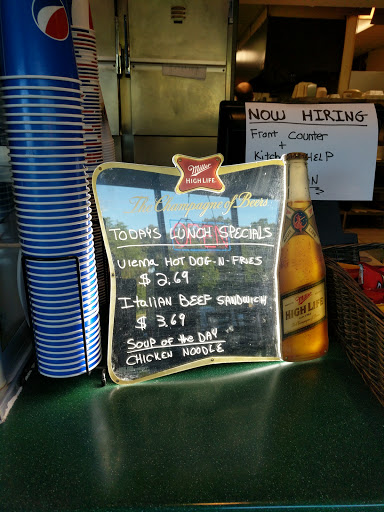 NOW HIRING
Front Counter
+
Kitch HELP
Miller
HIGH LIFE
The Champagne of Beers
TODAYS LUNCH SPECIALS
Viema HOT DOG-N-FRIES
$ 2.69
ITaliaN BEEF SANDWICH
$ 3.69
SOUP of the DAY
CHICKEN NOODLE
Miller
HIGH LIFE